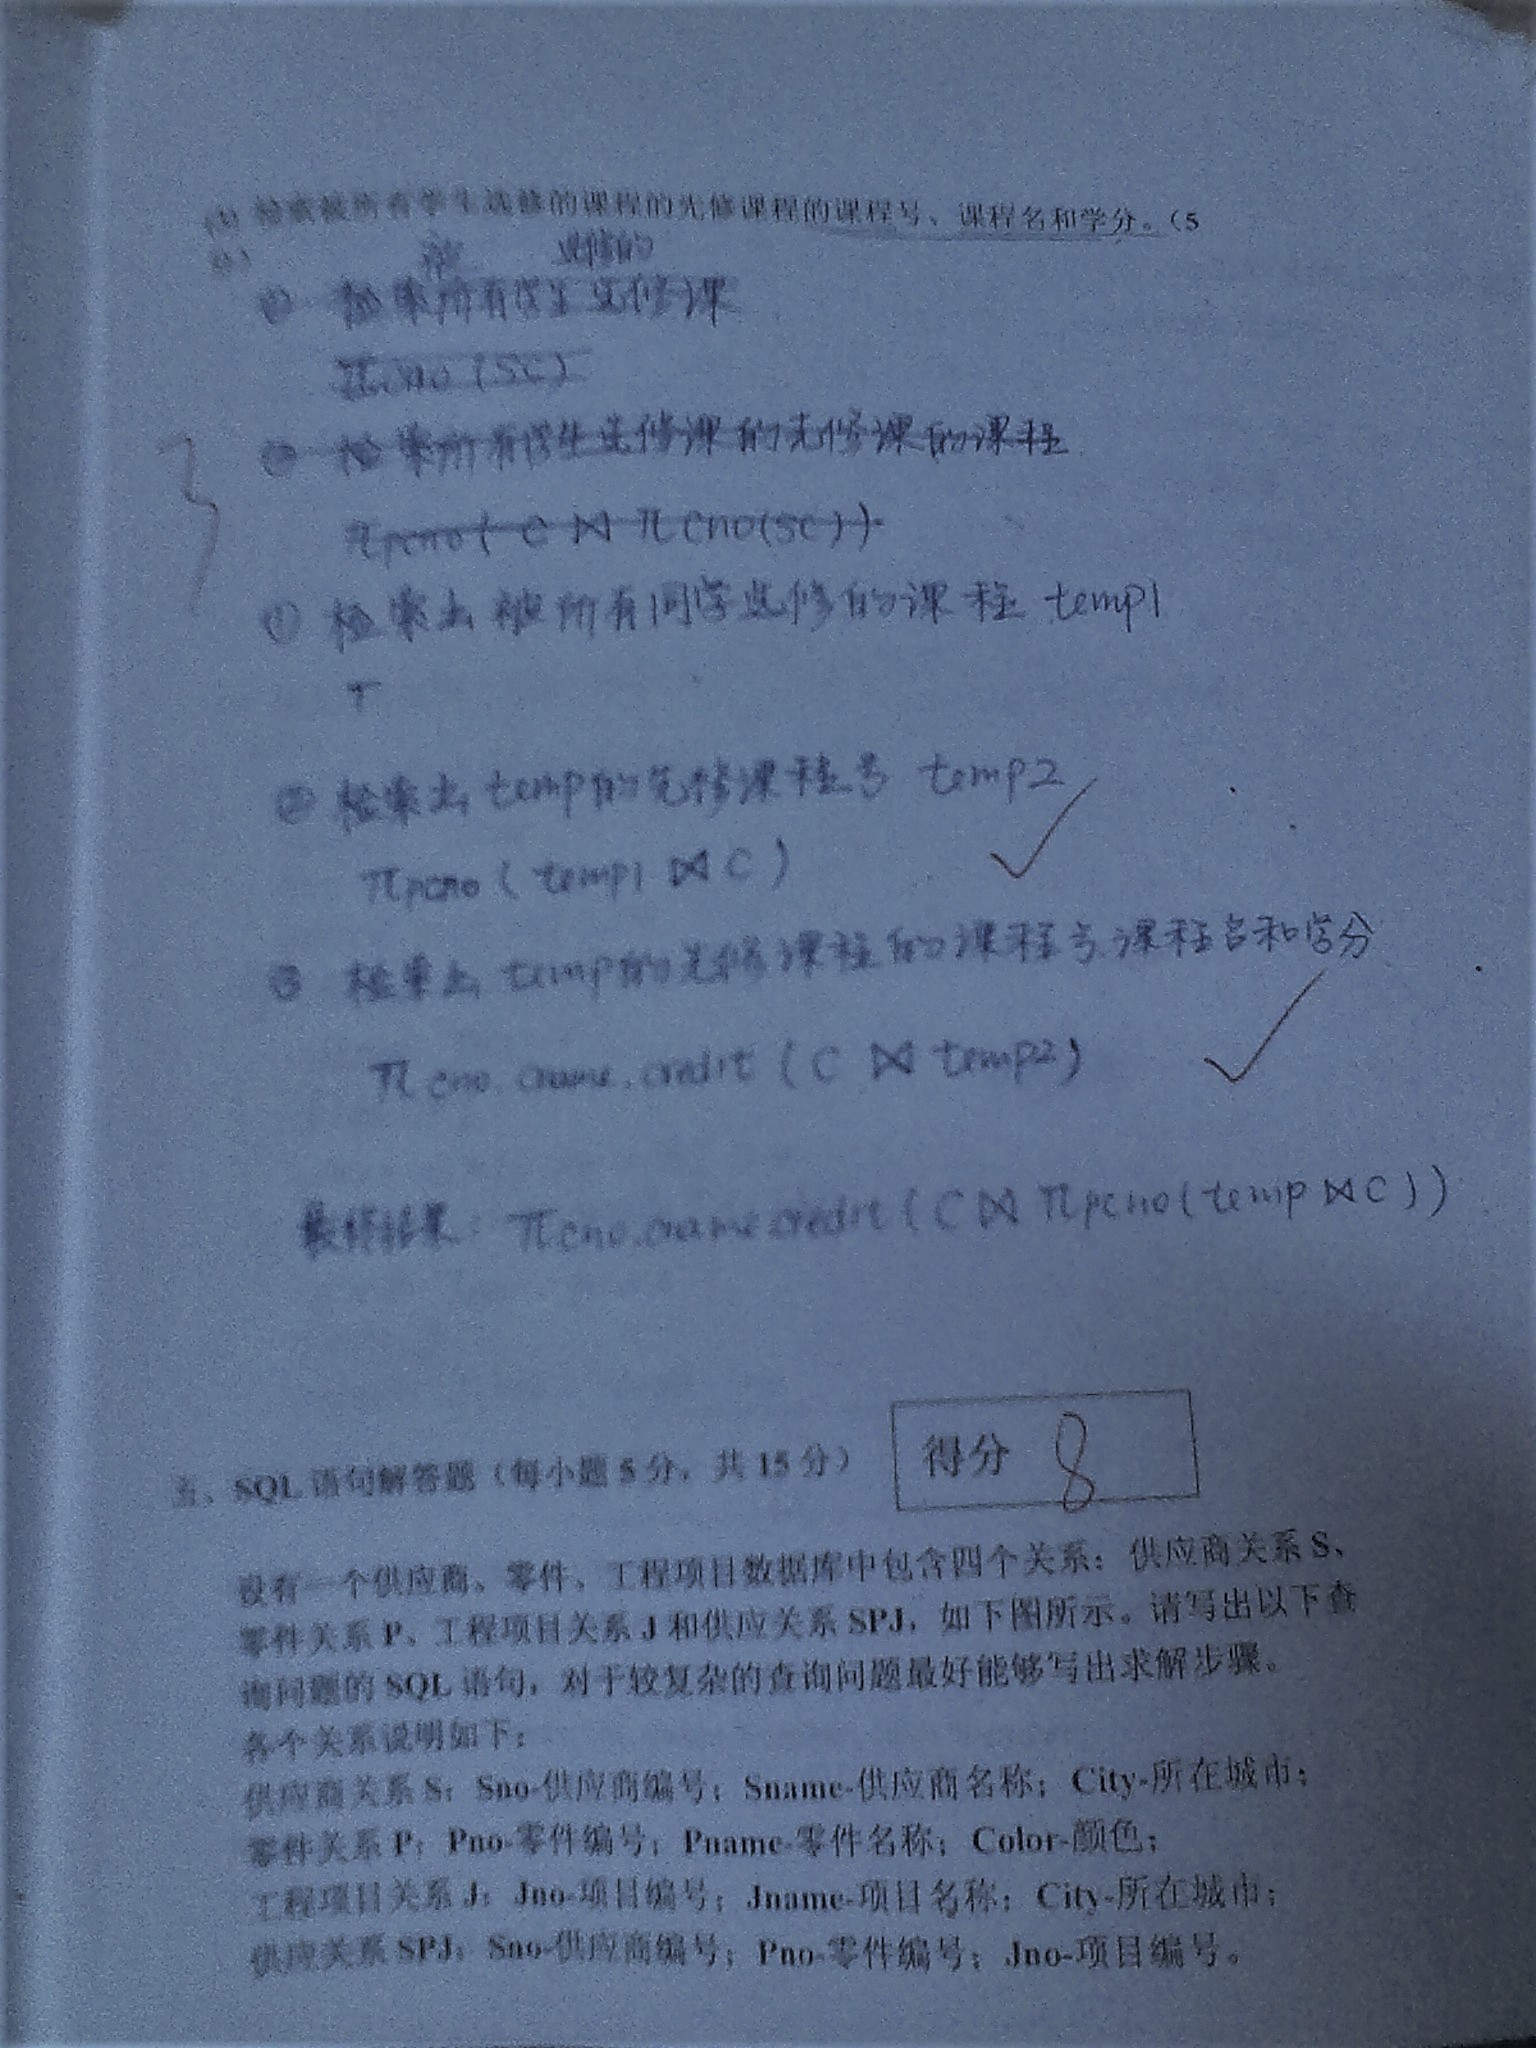 检索被所有学生选修的课程的先修课程的课程号、课程名和学分。（5
分）
被 选修的
① 检索所有学生选修课
πcno(SC)
② 检索所有学生选修课的先修课的课程
πpcno( C ⋈ πcno(SC))
3
① 检索出被所有同学选修的课程 temp1
② 检索出temp的先修课程号 temp2
πpcno ( temp1 ⋈ C )
③ 检索出temp的先修课程的课程号.课程名和学分
πcno.cname.credit ( C ⋈ temp2)
最终结果: πcno.cname.credit ( C ⋈ πpcno(temp ⋈ C))
得分 8
五、SQL 语句解答题（每小题 5 分，共 15 分）
设有一个供应商、零件、工程项目数据库中包含四个关系：供应商关系 S、
零件关系 P、工程项目关系 J 和供应关系 SPJ，如下图所示。请写出以下查
询问题的 SQL 语句，对于较复杂的查询问题最好能够写出求解步骤。
各个关系说明如下：
供应商关系 S：Sno-供应商编号；Sname-供应商名称；City-所在城市；
零件关系 P：Pno-零件编号；Pname-零件名称；Color-颜色；
工程项目关系 J：Jno-项目编号；Jname-项目名称；City-所在城市；
供应关系 SPJ：Sno-供应商编号；Pno-零件编号；Jno-项目编号。